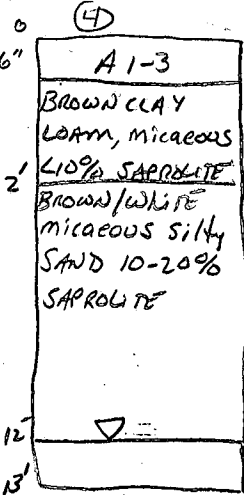 0 4
6" A 1-3
BROWN CLAY
LOAM, micaeous
<10% SAPROLITE
2'
BROWN/WHITE
micaeous silty
SAND 10-20%
SAPROLITE
12'
13'